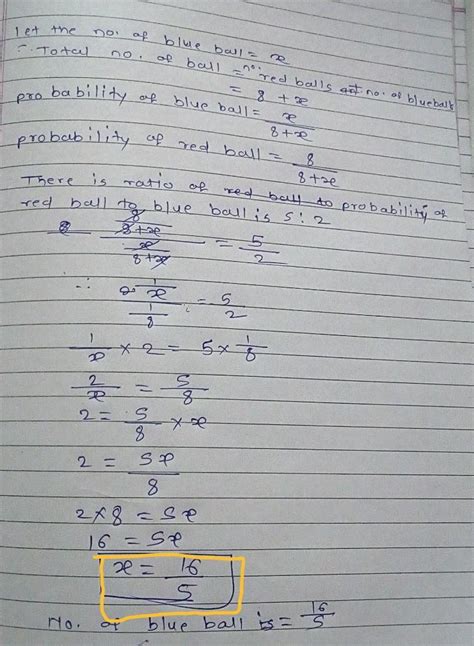 let the no. of blue ball = x
∴ Total no. of ball = no. red balls + no. of blue balls
= 8 + x
probability of blue ball = x / 8+x
probability of red ball = 8 / 8+x
There is ratio of red ball to probability of
red ball to blue ball is 5:2
8 / 8+x / x / 8+x = 5 / 2
∴ 1 / x / 1 / 8 = 5 / 2
1 / x × 2 = 5 × 1 / 8
2 / x = 5 / 8
2 = 5 / 8 × x
2 = 5x / 8
2×8 = 5x
16 = 5x
x = 16 / 5
No. of blue ball is = 16 / 5